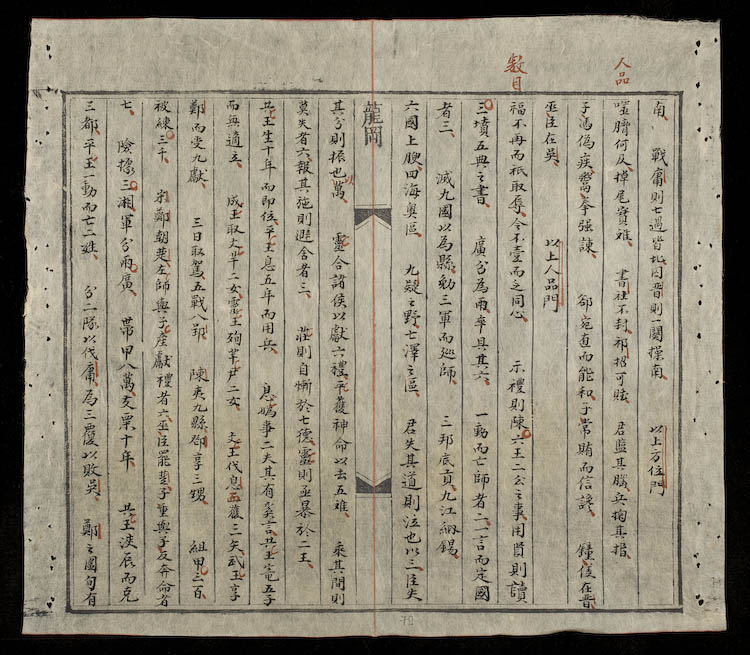 人品
南、 戰庸則七遇皆北囚晋則一闋操南、 以上方位門
噬臍何及掉尾實難、 書社不封祁招可賅 君盬其腦兵掬其指、
子馮偽疾鬻拳强諫、 郤宛直而能和子常賄而信讒、 鍾儀在晋
巫臣在吳、 以上人品門
數目
福不再而祇取辱、令不壹而乏同心、 示禮則陳六王二公之事用則讀
三墳五典之書、 廣分為兩卒具其六、 一動而亡師者二一言而定國
者三、 滅九國以為縣動三軍而廵師、 三邦底貢九江納錫、
六國上腴四海奧區、 九疑之野七澤之區、 君失其道則法也以三臣失
龍岡
其分則振也萬、 靈合諸侯以獻六禮平獲神命以去五難、 乘其間則
莫失者六報其施則避舍者三、 莊則自慚於七德靈則亟暴於二王、
共王生十年而即位平王息五年而用兵、 息媯事二夫其有奚言共王寵五子
而無適立、 成王取文羋二女靈王殉芊尹二女、 文王伐息而獲三矢武王享
鄭而受九獻、 三日取駕五戰入郢、 陳夷九縣鄧享三甥、 組甲三百
被練三千、 宋鄭朝楚左師與子產獻禮者六巫臣罷子重與子反奔命者
七、 險據三湘軍分兩廣、 帶甲八萬支粟十年、 共王浹辰而克
三都、平王一動而亡二姓、 分二隊以伐庸為三覆以敗吳、 鄭之國句有